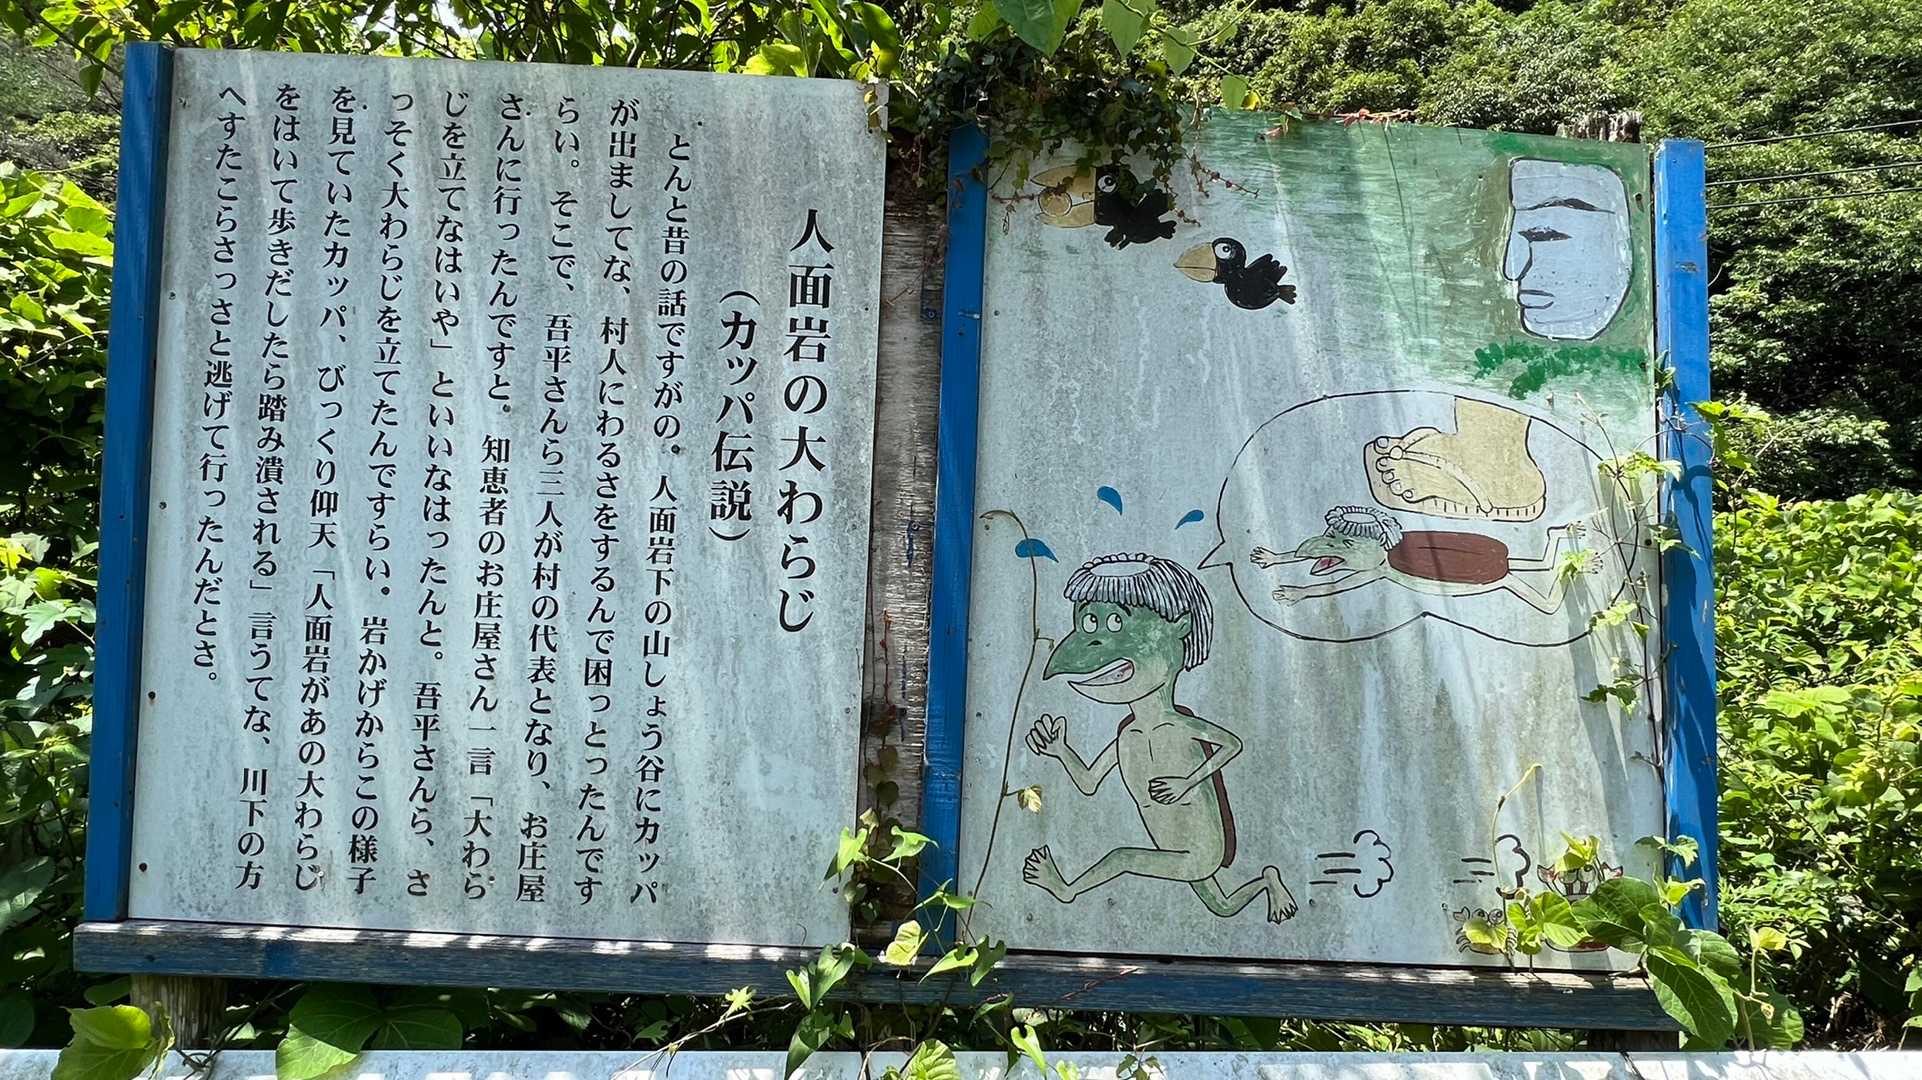 人面岩の大わらじ
（カッパ伝説）
とんと昔の話ですがの。人面岩下の山しょう谷にカッパ
が出ましてな、村人にわるさをするんで困っとったんです
らい。そこで、吾平さんら三人が村の代表となり、お庄屋
さんに行ったんですと。知恵者のお庄屋さん一言「大わら
じを立てなはいや」といいなはったんと。吾平さんら、さ
っそく大わらじを立てたんですらい。岩かげからこの様子
を見ていたカッパ、びっくり仰天「人面岩があの大わらじ
をはいて歩きだしたら踏み潰される」言うてな、川下の方
へすたこらさっさと逃げて行ったんだとさ。